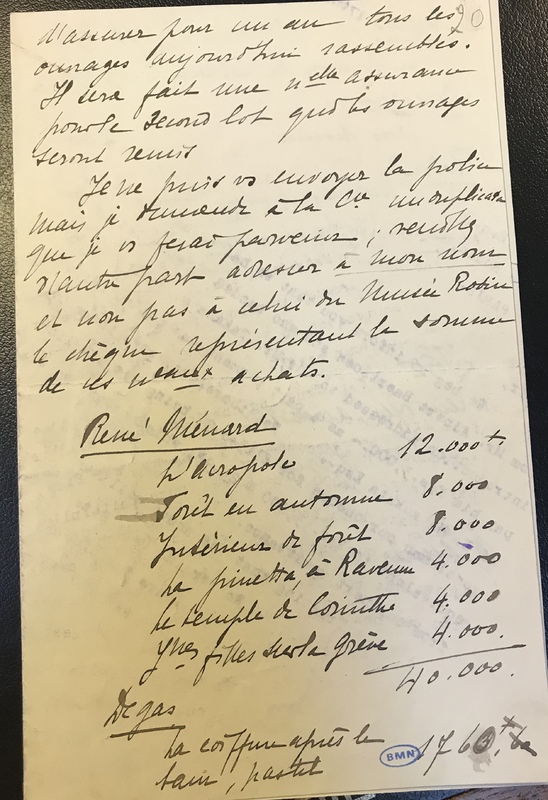 d'assurer pour un an tous les
ouvrages aujourd'hui rassemblés.
Il sera fait une nlle assurance
pour le second lot qud les ouvrages
seront remis
Je ne puis vs envoyer la police
mais je demande à la Cie un duplicata
que je vs ferai parvenir ; veuillez
d'autre part adresser à mon nom
et non pas à celui du Musée Rodin
le chèque représentant la somme
de ces nveaux achats.
René Ménard
L'acropole 12.000 f
Forêt en automne 8.000
Intérieur de forêt 8.000
La pinetta, à Ravenne 4.000
Le temple de Corinthe 4.000
Jnes filles sur la grève 4.000.
40.000.
Degas
La coiffure après le
bain, pastel 1760. f
BMN